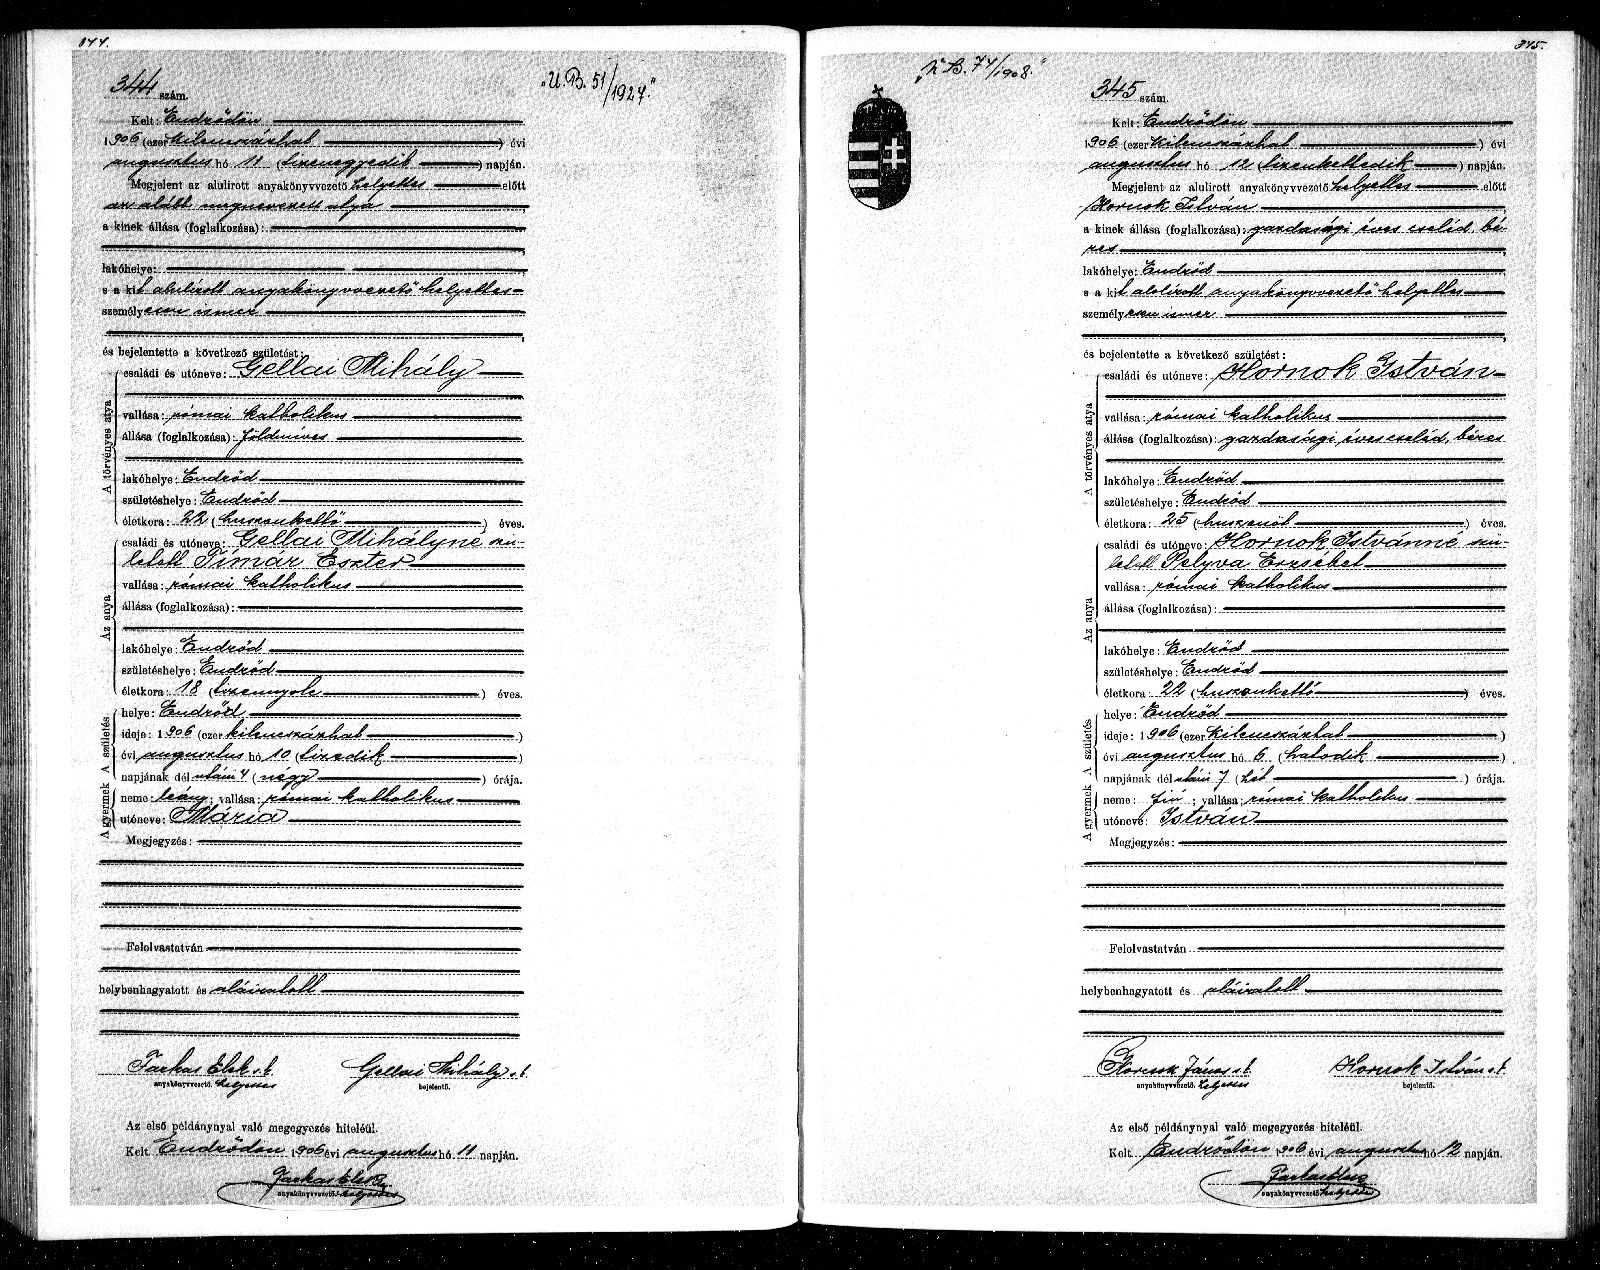 344.
344 szám.
"U. B. 51/1927."
Kelt: Endrődön
1906 (ezer kilenczázhat) évi
augusztus hó 11 (tizenegyedik) napján.
Megjelent az alulirott anyakönyvvezető helyettes előtt
az alább megnevezett atya
a kinek állása (foglalkozása):
lakóhelye:
s a kit alulirott anyakönyvvezető helyettes
személyesen ismer
és bejelentette a következő születést:
A törvényes atya
családi és utóneve: Gellai Mihály
vallása: római katholikus
állása (foglalkozása): földmíves
lakóhelye: Endrőd
születéshelye: Endrőd
életkora: 22 (huszonkettő) éves.
Az anya
családi és utóneve: Gellai Mihályné szü-
letett Tímár Eszter
vallása: római katholikus
állása (foglalkozása):
lakóhelye: Endrőd
születéshelye: Endrőd
életkora: 18 (tizennyolc) éves.
A születés
helye: Endrőd
ideje: 1906 (ezer kilenczázhat)
évi augusztus hó 10 (tizedik)
napjának dél utáni 4 (négy) órája.
A gyermek
neme: leány; vallása: római katholikus
utóneve: Mária
Megjegyzés:
Felolvastatván
helybenhagyatott és aláiratott
Farkas Elek s.k. Gellai Mihály s.k.
anyakönyvvezető helyettes bejelentő.
Az első példánynyal való megegyezés hiteléül.
Kelt Endrődön 1906 évi augusztus hó 11 napján.
Farkas Elek
anyakönyvvezető helyettes
345.
"U. B. 74/1908."
345 szám.
Kelt: Endrődön
1906 (ezer kilenczázhat) évi
augusztus hó 12 (tizenkettedik) napján.
Megjelent az alulirott anyakönyvvezető helyettes előtt
Hornok István
a kinek állása (foglalkozása): gazdasági éves cseléd, bé-
res
lakóhelye: Endrőd
s a kit alulirott anyakönyvvezető helyettes
személyesen ismer
és bejelentette a következő születést:
A törvényes atya
családi és utóneve: Hornok István
vallása: római katholikus
állása (foglalkozása): gazdasági éves cseléd, béres
lakóhelye: Endrőd
születéshelye: Endrőd
életkora: 25 (huszonöt) éves.
Az anya
családi és utóneve: Hornok Istvánné szü-
letett Pelyva Erzsébet
vallása: római katholikus
állása (foglalkozása):
lakóhelye: Endrőd
születéshelye: Endrőd
életkora: 22 (huszonkettő) éves.
A születés
helye: Endrőd
ideje: 1906 (ezer kilenczázhat)
évi augusztus hó 6 (hatodik)
napjának dél utáni 7 (hét) órája.
A gyermek
neme: fiú; vallása: római katholikus
utóneve: István
Megjegyzés:
Felolvastatván
helybenhagyatott és aláiratott
János s.k. Hornok István s.k.
anyakönyvvezető helyettes bejelentő.
Az első példánynyal való megegyezés hiteléül.
Kelt Endrődön 1906 évi augusztus hó 12 napján.
Farkas Elek
anyakönyvvezető helyettes